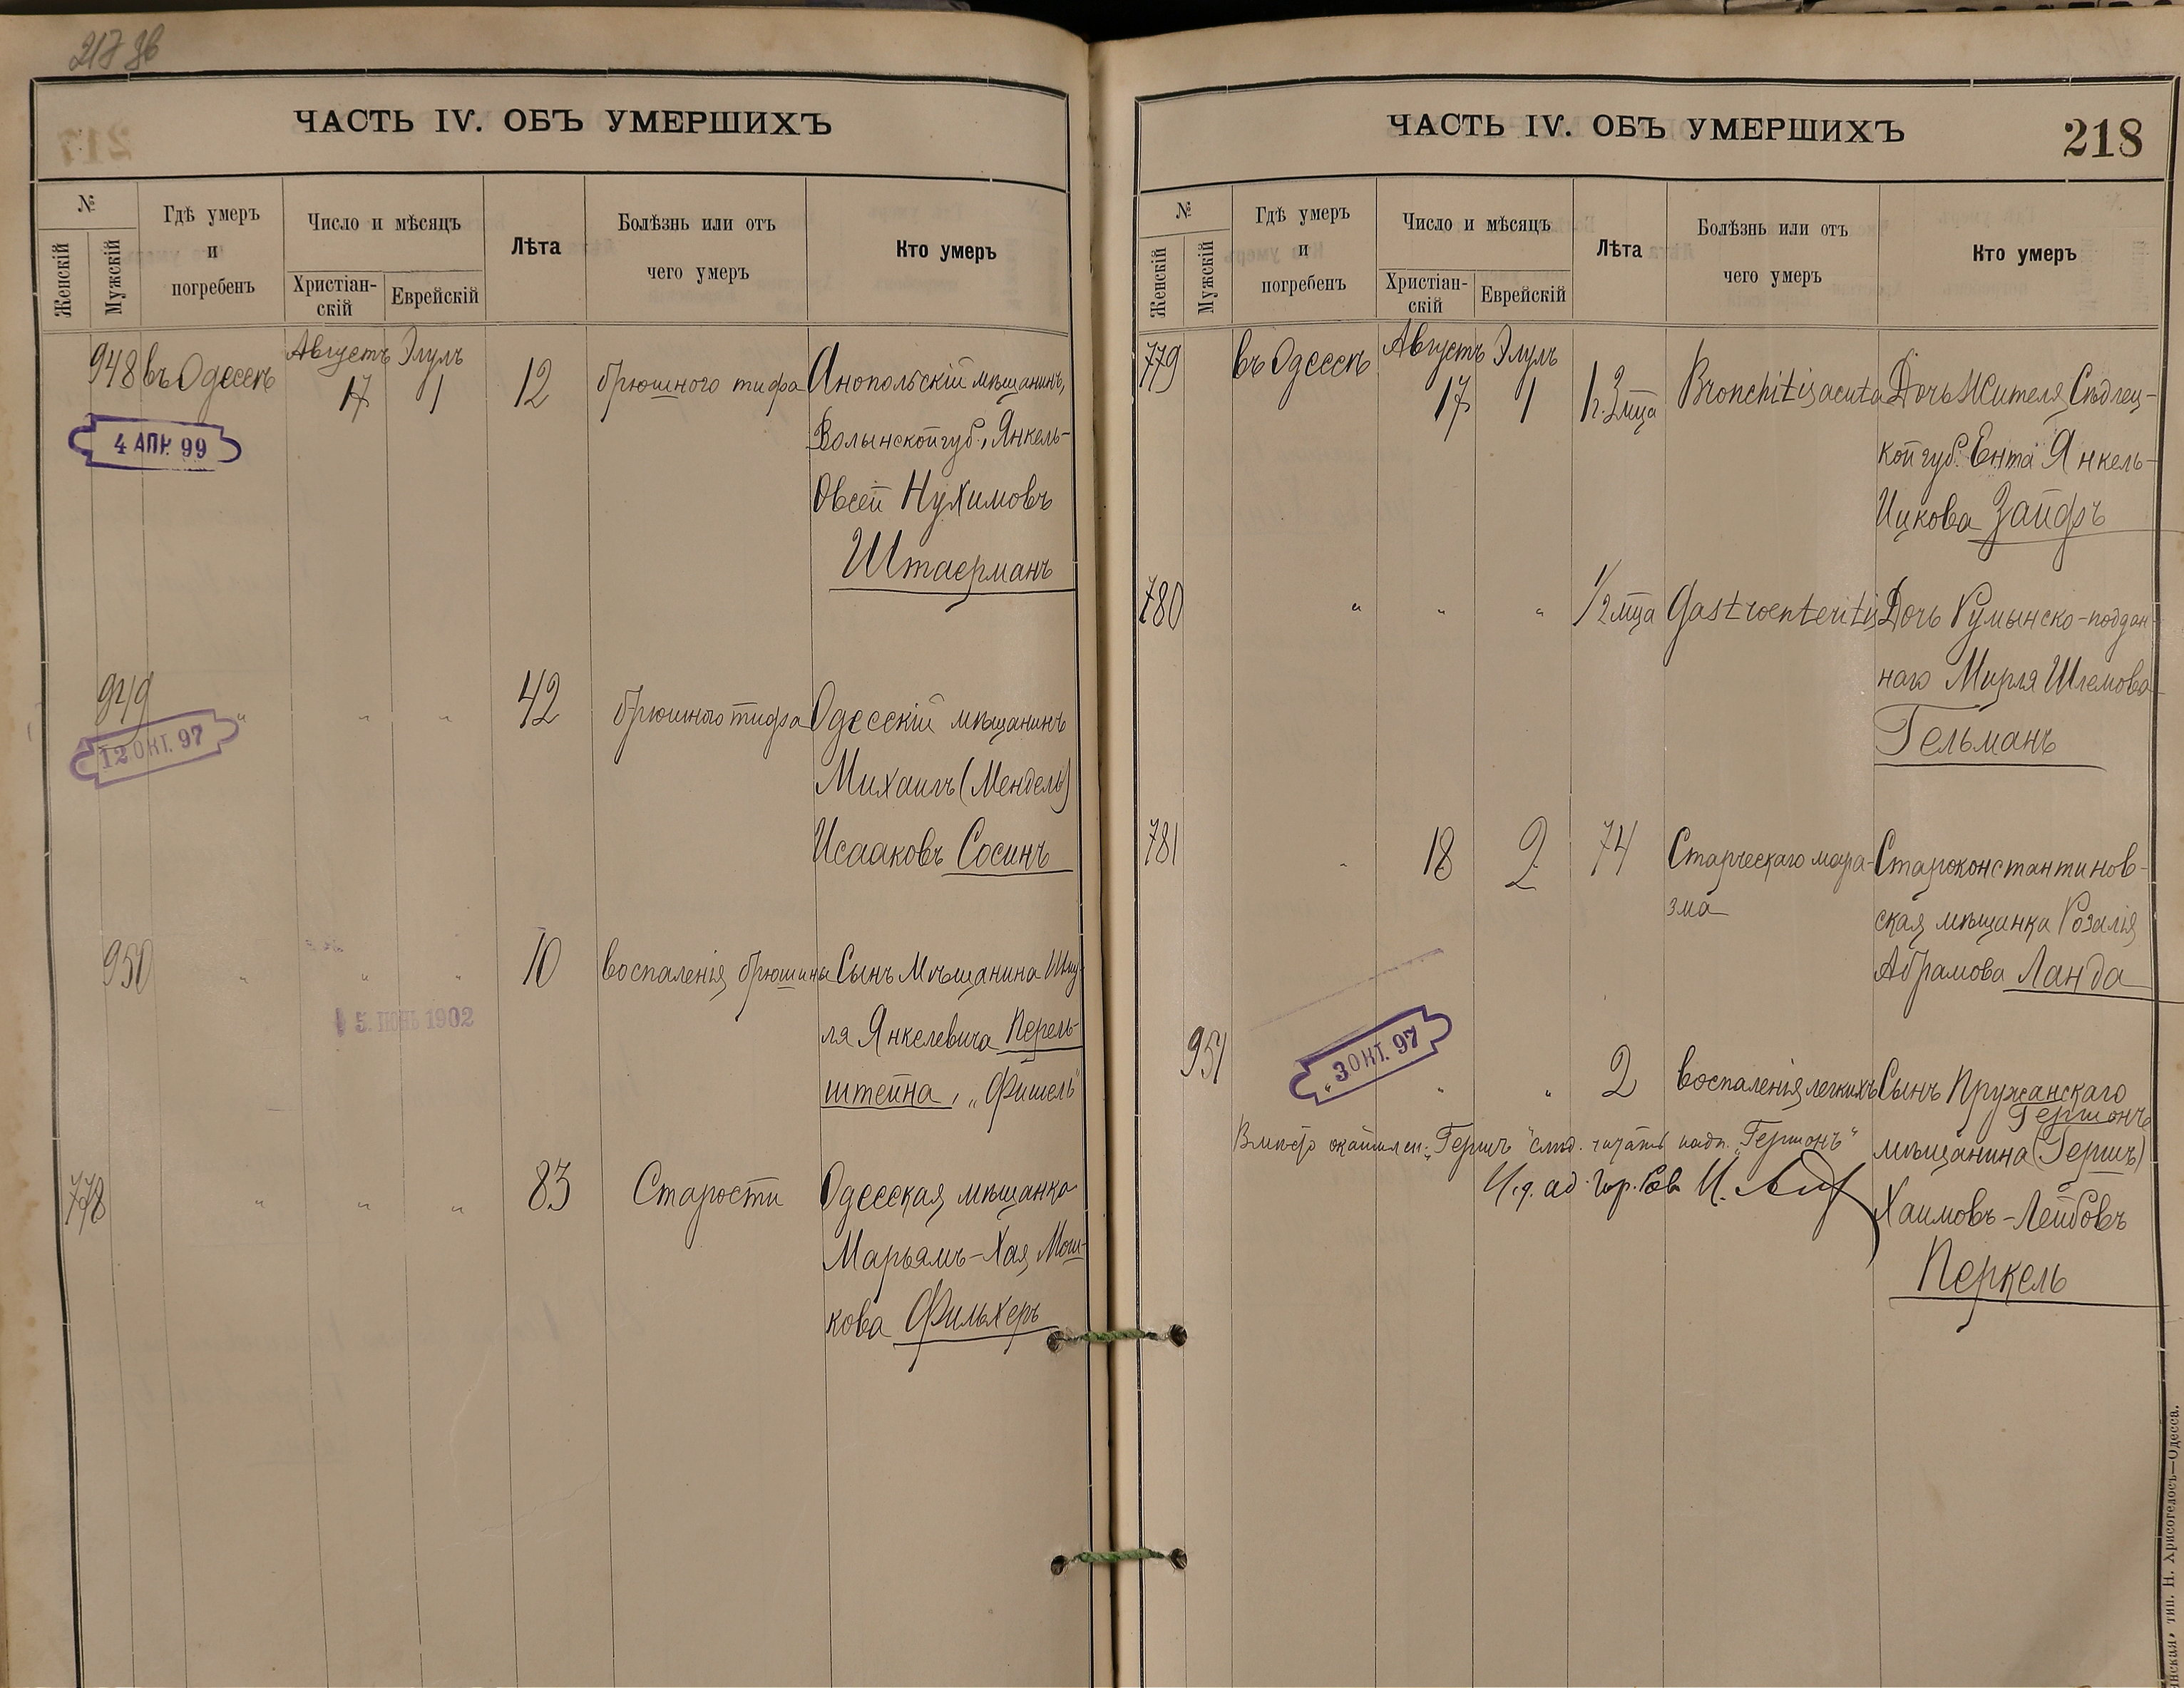 217 об
ЧАСТЬ IV. ОБЪ УМЕРШИХЪ
№
Женскій
Мужскій
Гдѣ умеръ
и
погребенъ
Число и мѣсяцъ
Христіан-
скій
Еврейскій
Лѣта
Болѣзнь или отъ
чего умеръ
Кто умеръ
948 въ Одессѣ Августъ 17 Элулъ 1 12 брюшного тифа Анопольскій мѣщанинъ,
4 АПР. 99
Волынской губ., Янкель-
Овсей Нухимовъ
Штаерманъ
949 " " " 42 брюшного тифа Одесскій мѣщанинъ
12 ОКТ. 97
Михаилъ (Мендель)
Исааковъ Сосинъ
950 " " " 10 воспаленія брюшины Сынъ мѣщанина Шму-
5. ІЮНЬ 1902
ля Янкелевича Перель-
штейна, „Фишель"
778 " " " 83 Старости Одесская мѣщанка
Марьямъ-Хая Мош-
кова Фильхеръ
ЧАСТЬ IV. ОБЪ УМЕРШИХЪ
218
№
Женскій
Мужскій
Гдѣ умеръ
и
погребенъ
Число и мѣсяцъ
Христіан-
скій
Еврейскій
Лѣта
Болѣзнь или отъ
чего умеръ
Кто умеръ
779 въ Одессѣ Августъ 17 Элулъ 1 1 г. 3 мца Bronchitis acuta Дочь жителя Сѣдлец-
кой губ. Ента Янкель-
Ицкова Зайфъ
780 " " " 1/2 мца Gastroenteritis Дочь Румынско-поддан-
наго Мирля Шлемова
Гельманъ
781 " 18 2 74 Старческаго мара- Староконстантинов-
зма
ская мѣщанка Розалія
Абрамова Ланда
951 " " 2 воспаленія легкихъ Сынъ Пружанскаго
3 ОКТ. 97
Гершонъ
Вмѣсто окаймлен. „Гершъ" слѣд. читать надп. „Гершонъ" мѣщанина (Гершъ)
И. д. од. гор. Рав. И.
Хаимовъ-Лейбовъ
Перкель
тип. Н. Хрисогелосъ—Одесса.